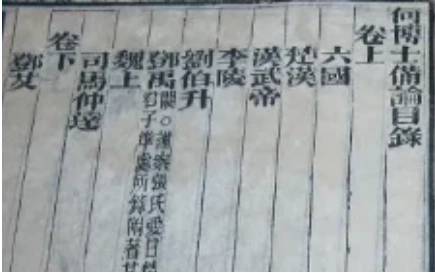 何博士備論目錄
卷上
六國
楚漢
漢武帝
李陵
劉伯升
鄧禹
闕○謹案張氏愛日
子準處所錄附著其
魏上
司馬仲達
卷下
鄧艾